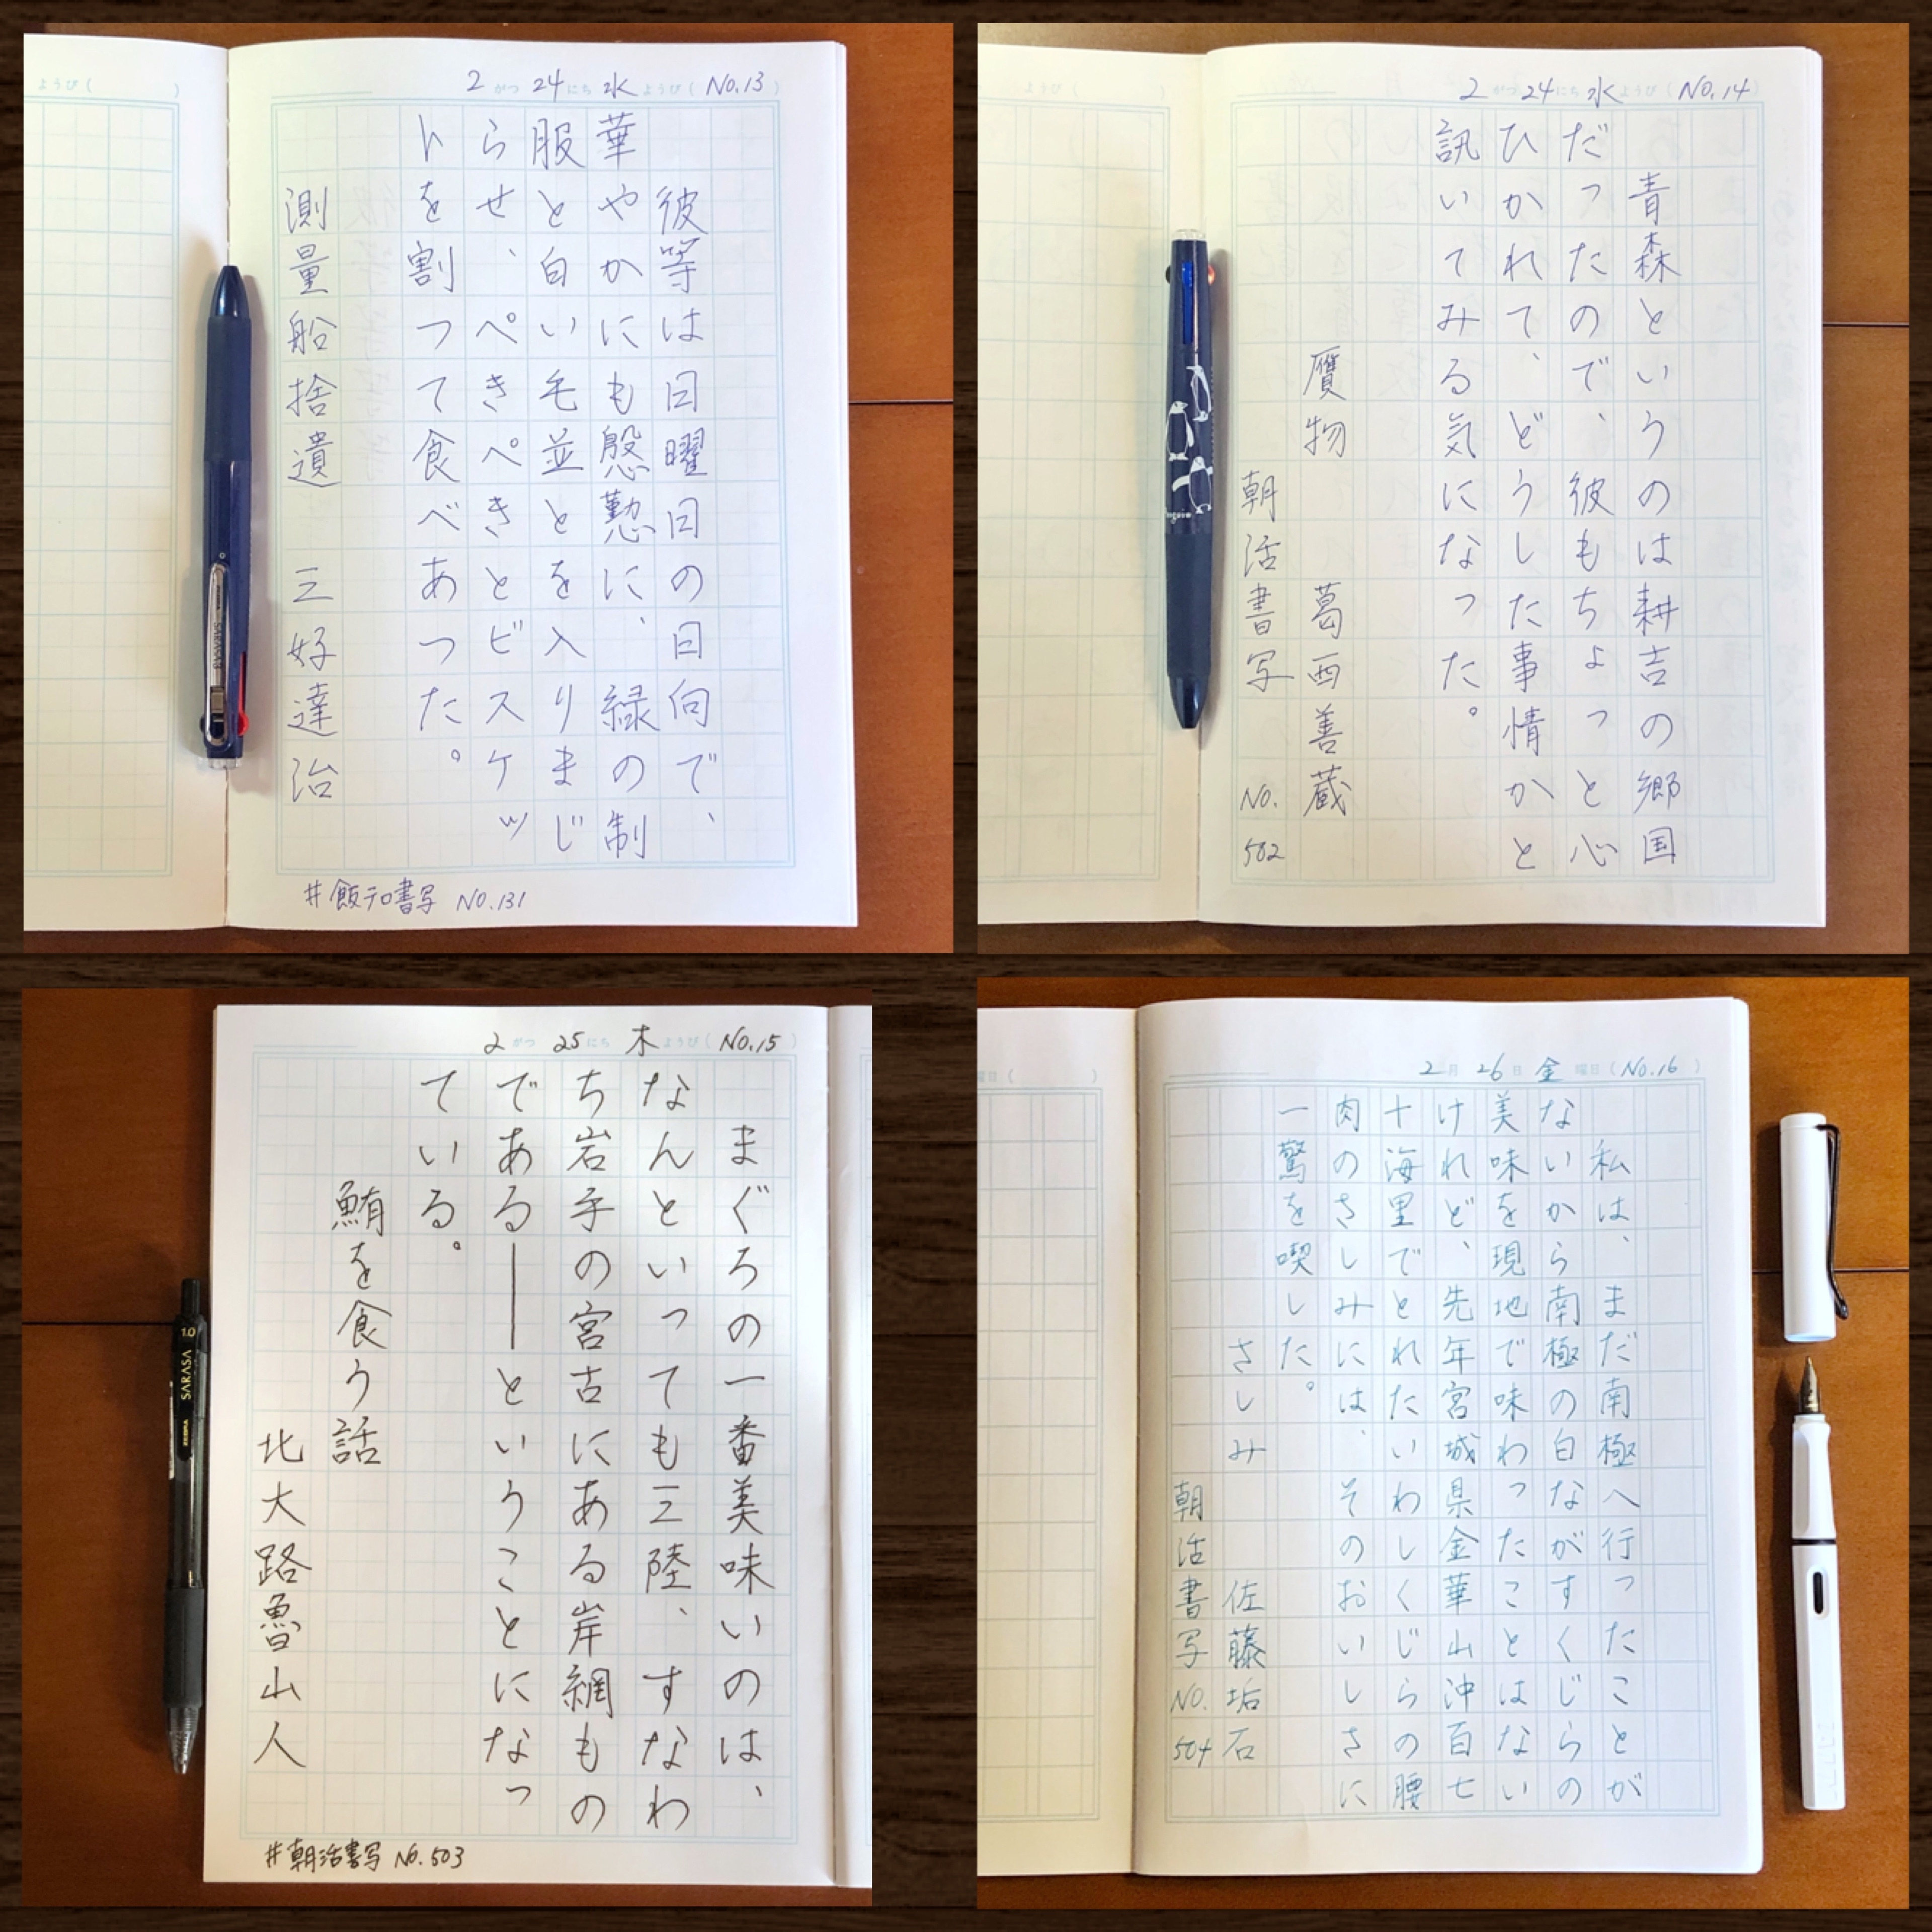 2がつ24にち水ようび(No.13)
彼等は日曜日の日向で、
華やかにも慇懃に、緑の制
服と白い毛並とを入りまじ
らせ、ぺきぺきとビスケッ
トを割つて食べあつた。
測量船捨遺 三好達治
#飯テロ書写 No.131
ようび( )
2がつ24にち水ようび(No.14)
青森というのは耕吉の郷国
だったので、彼もちょっと心
ひかれて、どうした事情かと
訊いてみる気になった。
贋物 葛西善蔵
朝活書写 No.502
ようび( )
2がつ25にち木ようび(No.15)
まぐろの一番美味いのは、
なんといっても三陸、すなわ
ち岩手の宮古にある岸網もの
である――ということになっ
ている。
鮪を食う話
北大路魯山人
#朝活書写 No.503
1.0 SARASA ZEBRA
2月26日金曜日(No.16)
私は、まだ南極へ行ったことが
ないから南極の白ながすくじらの
美味を現地で味わったことはない
けれど、先年宮城県金華山沖百七
十海里でとれたいわしくじらの腰
肉のさしみには、そのおいしさに
一驚を喫した。
さしみ 佐藤垢石
朝活書写 No.504
曜日( )